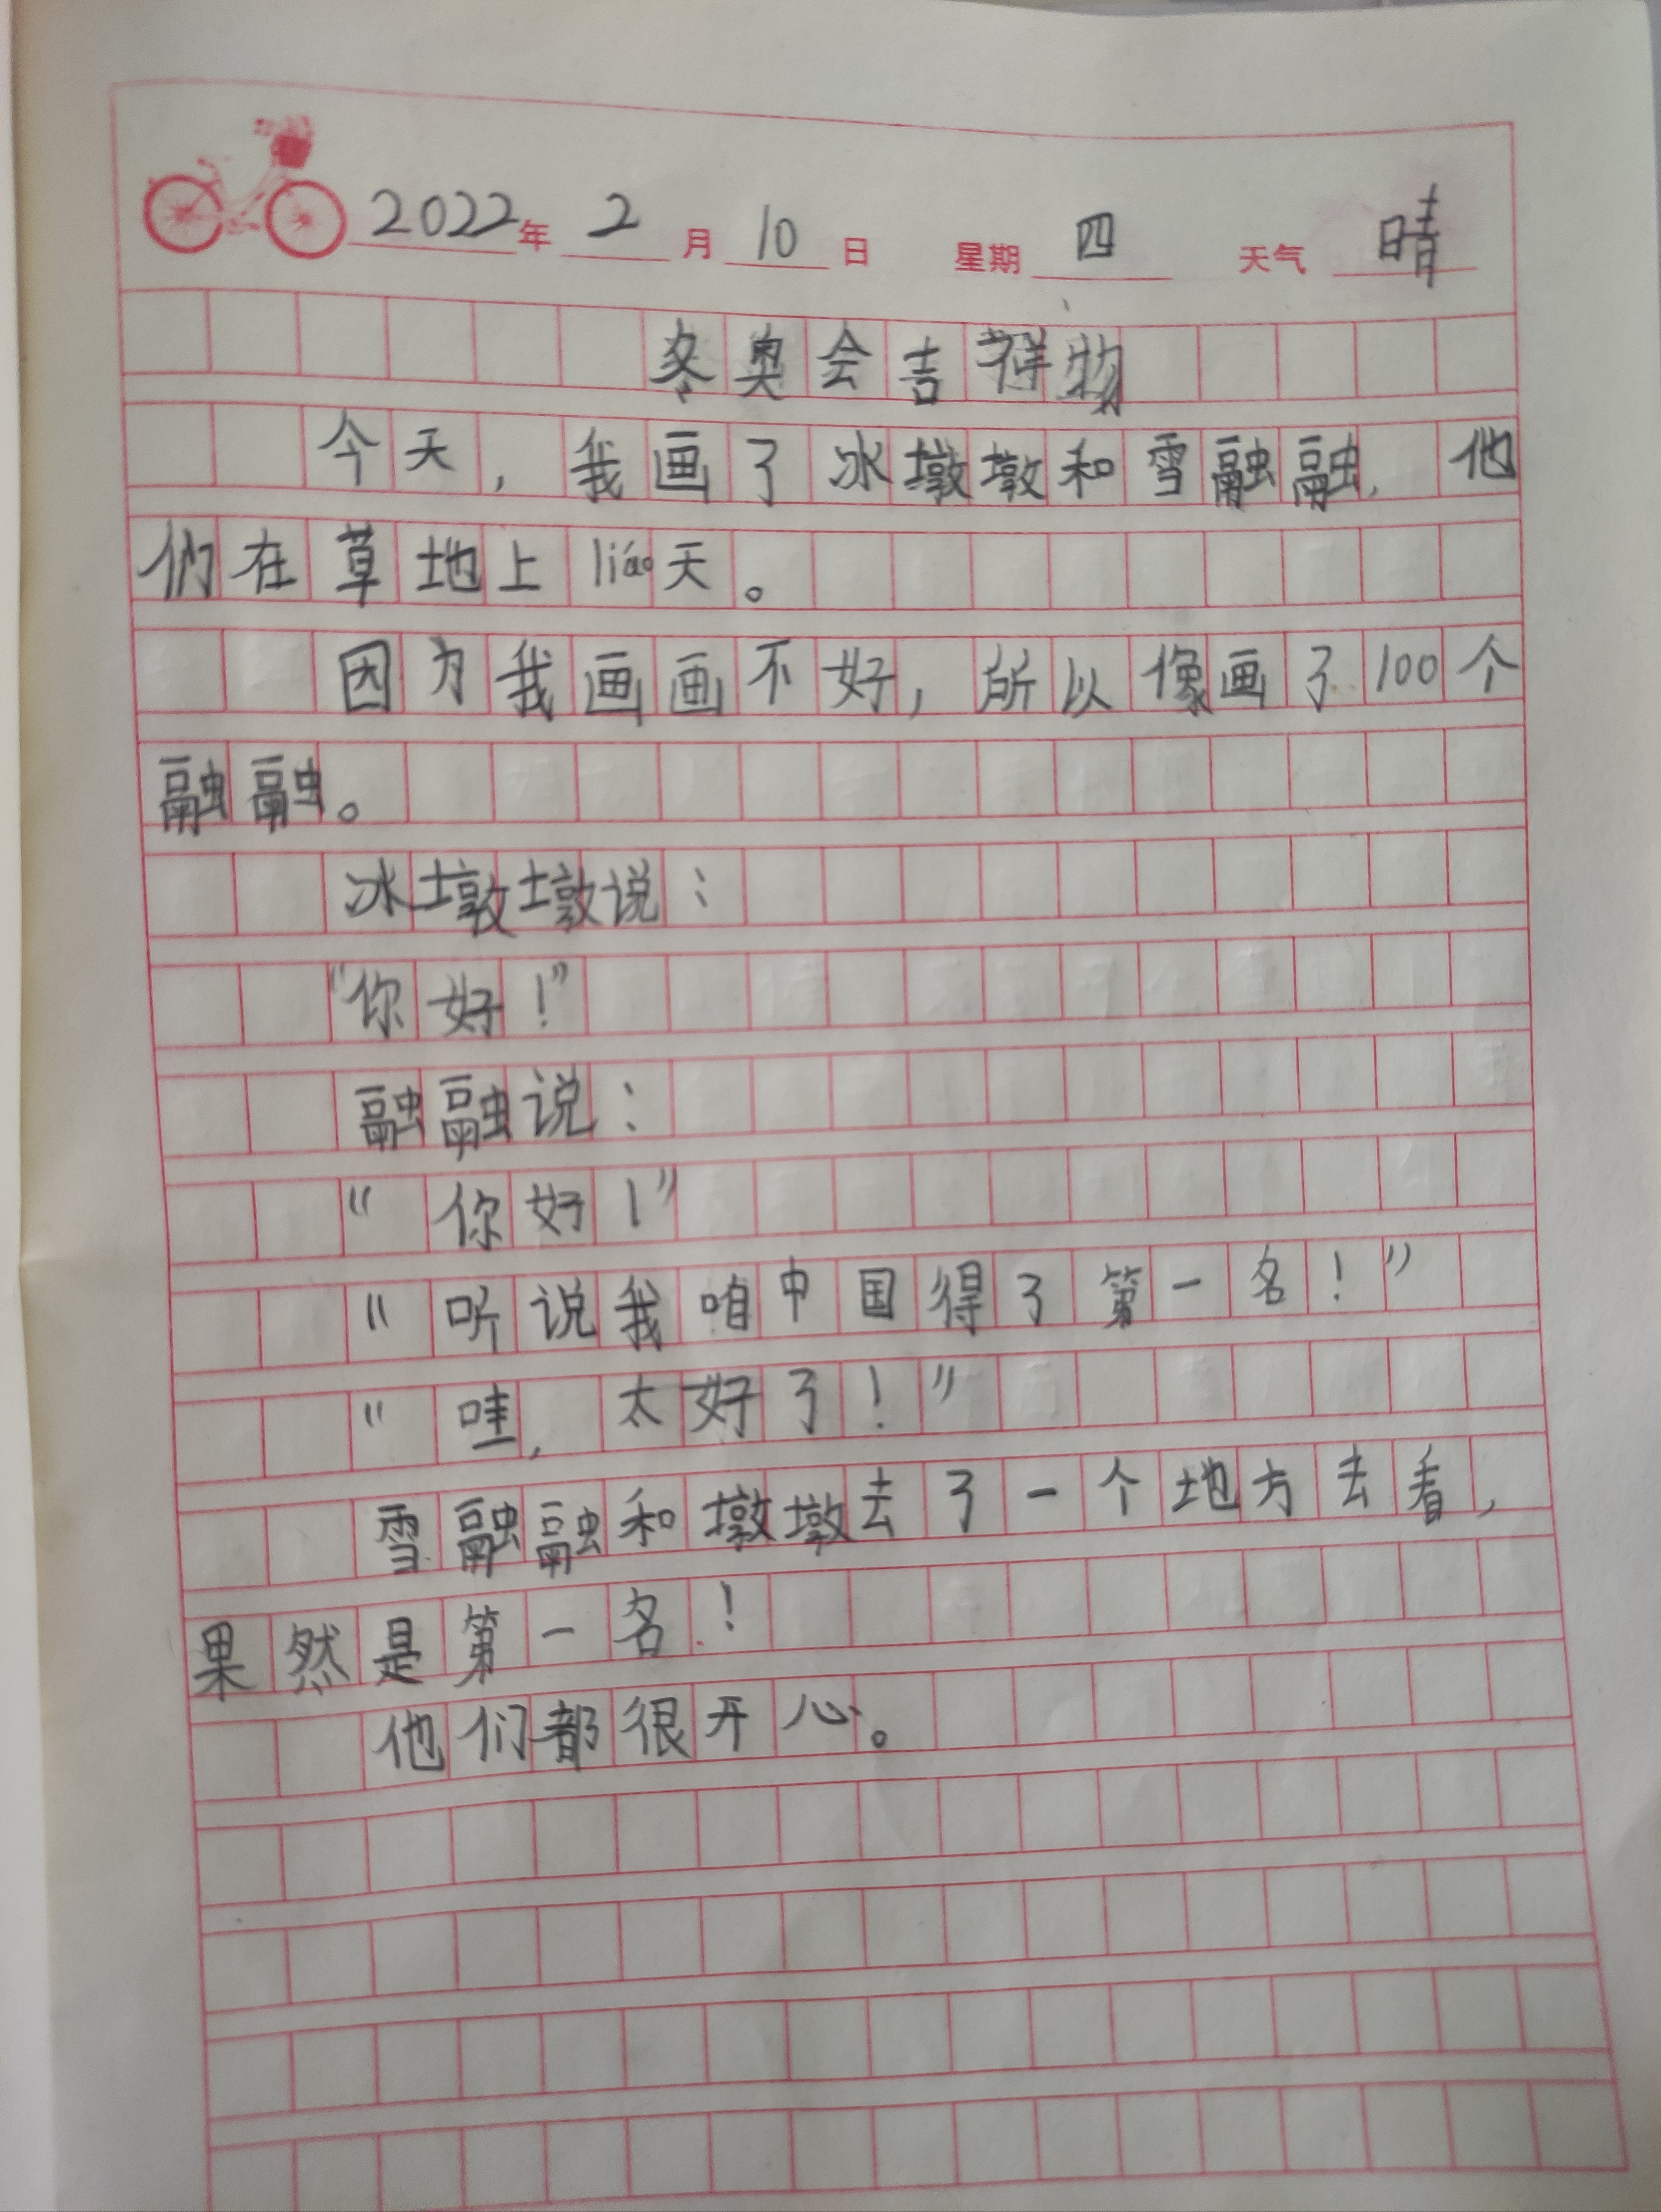 2022年 2月 10日 星期 四 天气 晴
冬奥会吉祥物
今天，我画了冰墩墩和雪融融，他
们在草地上liáo天。
因为我画画不好，所以像画了100个
融融。
冰墩墩说：
“你好！”
融融说：
“你好！”
“听说我咱中国得了第一名！”
“哇，太好了！”
雪融融和墩墩去了一个地方去看，
果然是第一名！
他们都很开心。